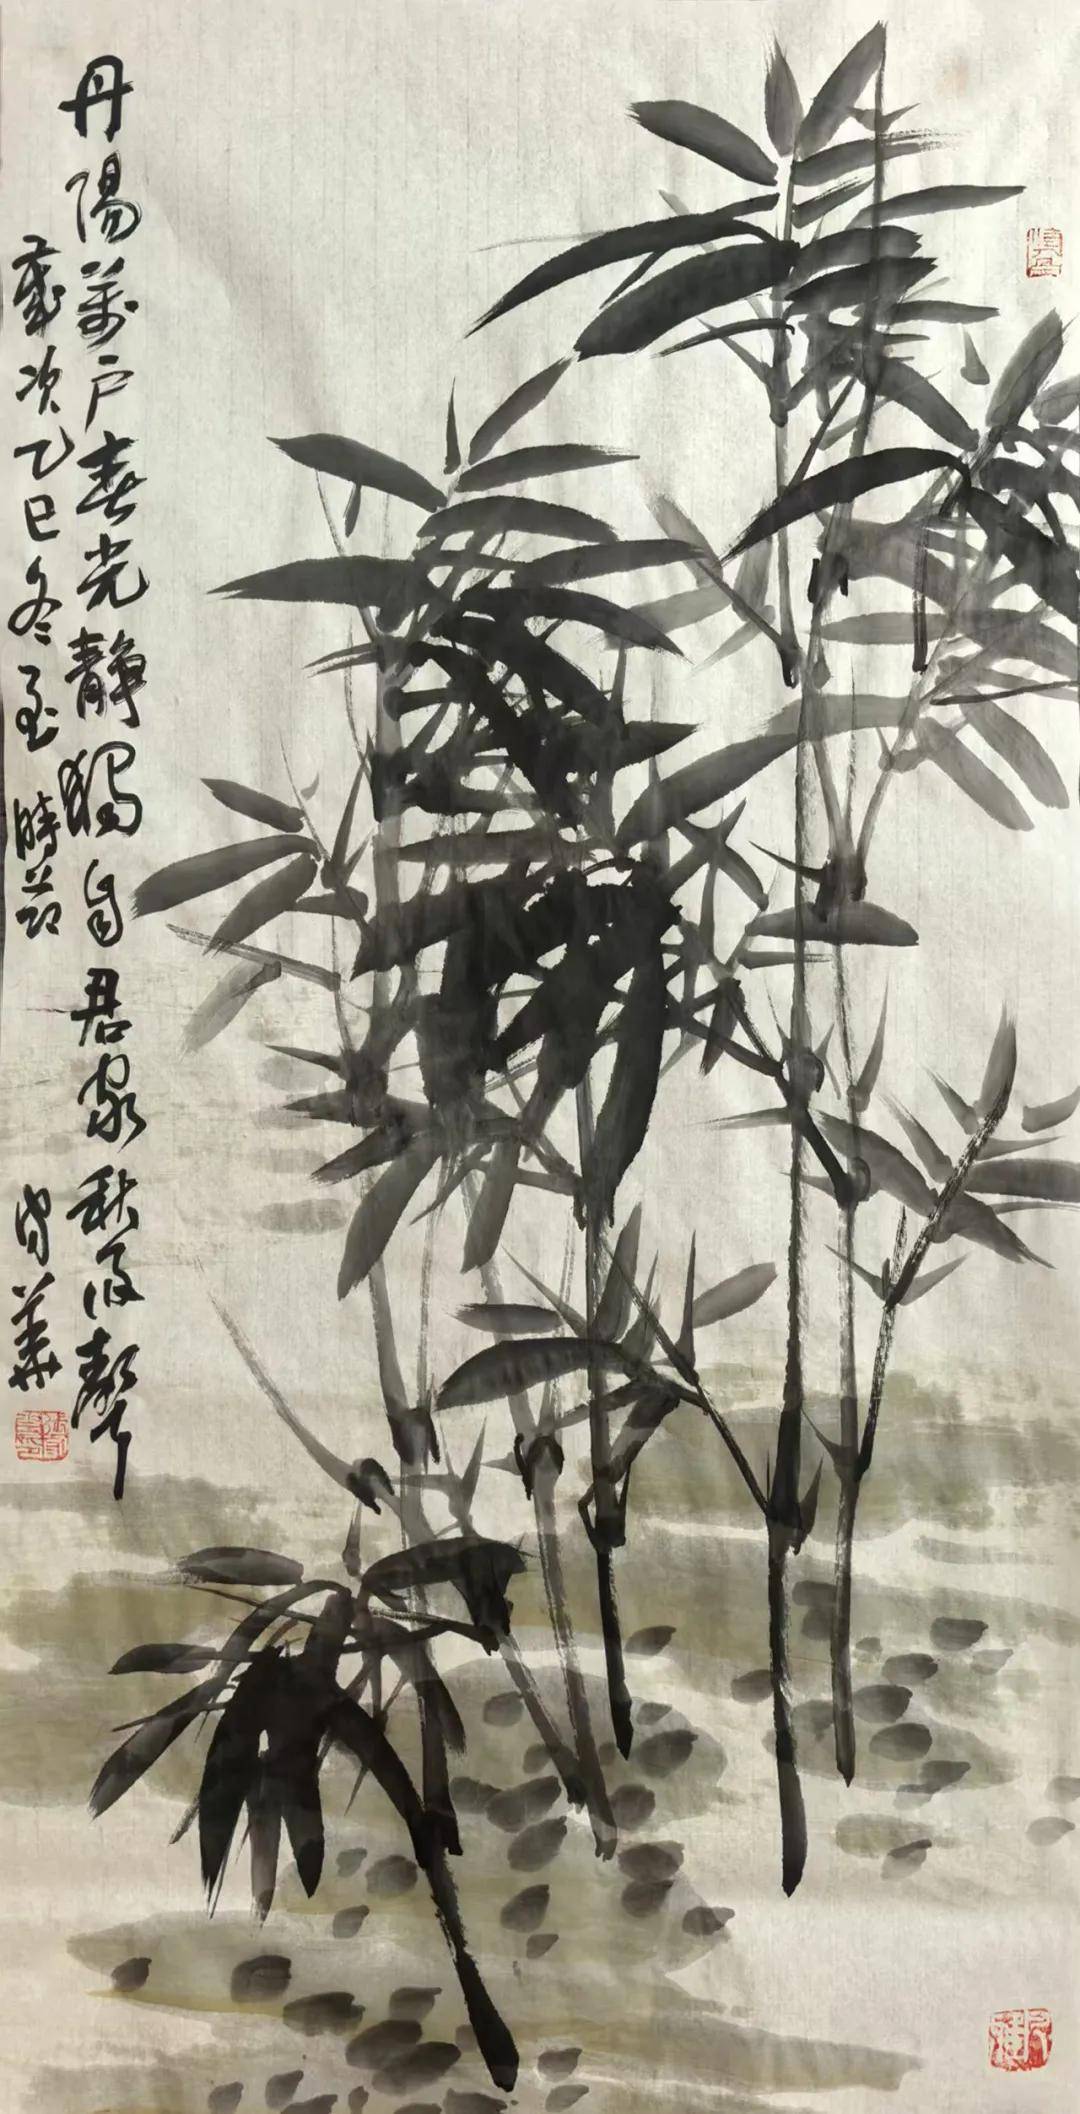 丹陽萬戶春光靜獨自君家秋雨聲
歲次乙巳冬至時節 華